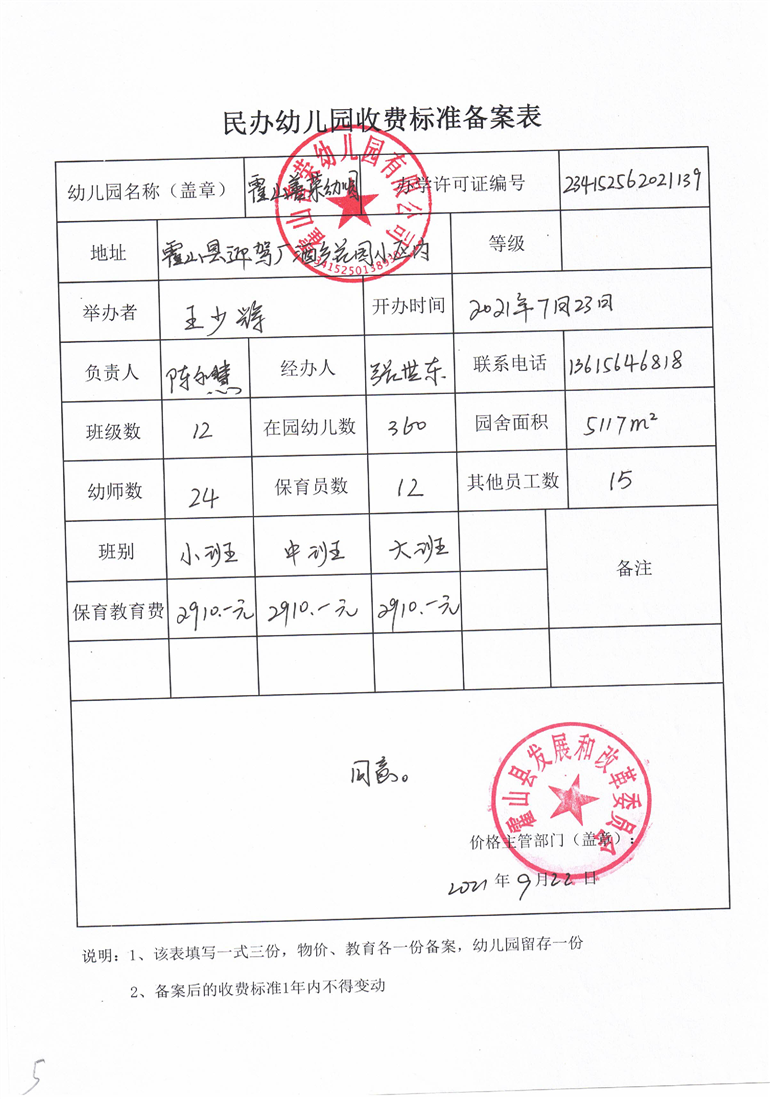 民办幼儿园收费标准备案表
幼儿园名称（盖章） 霍山蓍荣幼儿园 办学许可证编号 234152562021139
地址 霍山县迎驾厂酒乡花园小区内 等级
举办者 王少辉 开办时间 2021年7月23日
负责人 陈 慧 经办人 张世东 联系电话 13615646818
班级数 12 在园幼儿数 360 园舍面积 5117m²
幼师数 24 保育员数 12 其他员工数 15
班别 小班 中班 大班 备注
保育教育费 2910.-元 2910.-元 2910.-元
同意。
霍山县发展和改革委员会
价格主管部门（盖章）：
2021年9月22日
说明：1、该表填写一式三份，物价、教育各一份备案，幼儿园留存一份
2、备案后的收费标准1年内不得变动
5